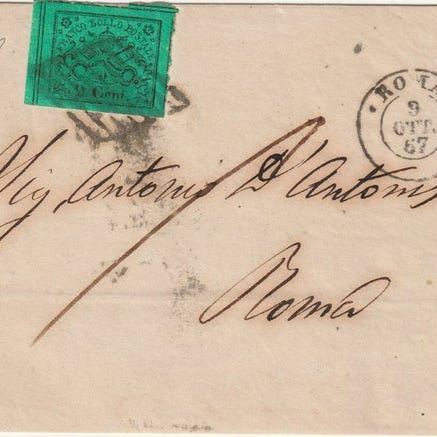 FRANCO BOLLO POSTALE
2 Cent
ROMA
9
OTT.
67
Sig Antonio D'Antoni
Roma